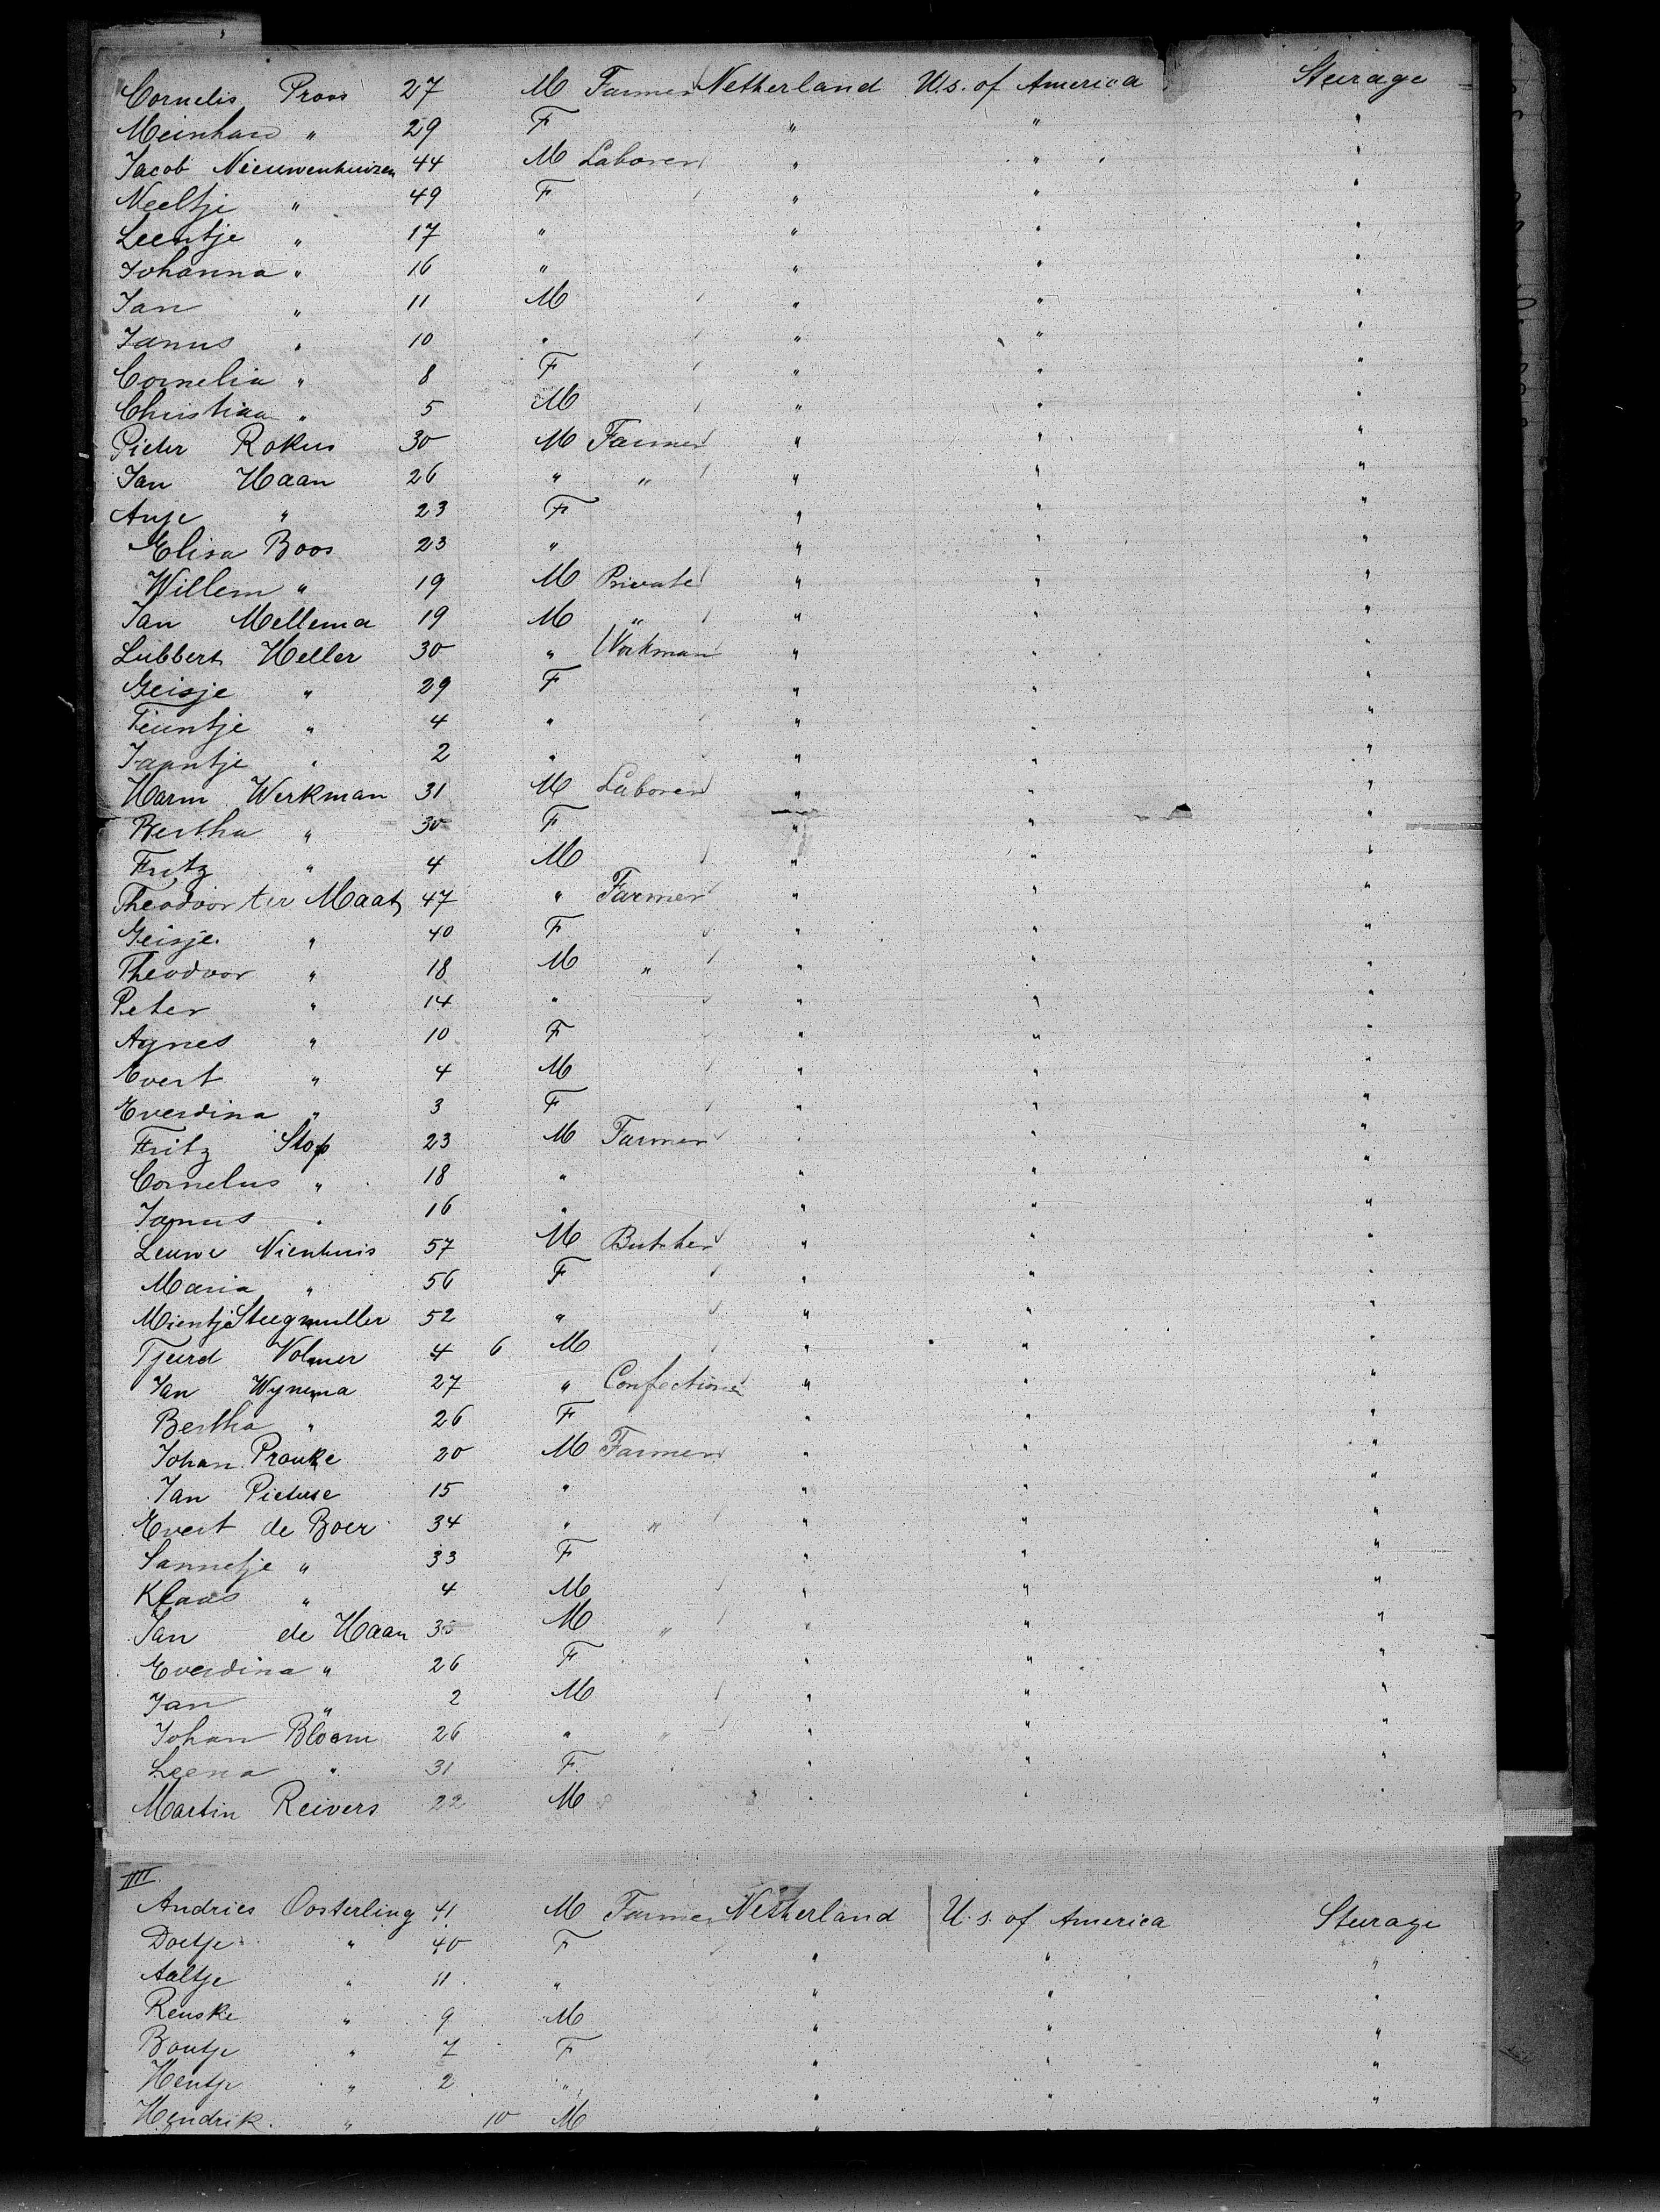 Cornelis Proos 27 M Farmer Netherland U.S. of America Steerage
Meinhard " 29 F " " "
Jacob Nieuwenhuizen 44 M Laborer " " "
Neeltje " 49 F " " "
Leentje " 17 " " " "
Johanna " 16 " " " "
Jan " 11 M " " "
Janus " 10 " " " "
Cornelia " 8 F " " "
Christiaan " 5 M " " "
Pieter Rokus 30 M Farmer " " "
Jan Haan 26 " " " " "
Anje " 23 F " " "
Elisa Boos 23 " " " "
Willem " 19 M Private " " "
Jan Mellema 19 M " " " "
Lubbert Heller 30 " Workman " " "
Geisje " 29 F " " "
Teuntje " 4 " " " "
Jaantje " 2 " " " "
Harm Werkman 31 M Laborer " " "
Bertha " 30 F " " "
Fritz " 4 M " " "
Theodoor ter Maat 47 " Farmer " " "
Geisje " 40 F " " "
Theodoor " 18 M " " " "
Peter " 14 " " " "
Agnes " 10 F " " "
Evert " 4 M " " "
Everdina " 3 F " " "
Fritz Stop 23 M Farmer " " "
Cornelus " 18 " " " "
Janus " 16 " " " "
Leuwe Nienhuis 57 M Butcher " " "
Maria " 56 F " " "
Mientje Steegmuller 52 " " " "
Tjeerd Volmer 4 6 M " " "
Jan Wynema 27 " Confectioner " " "
Bertha " 26 F " " "
Johan Pronke 20 M Farmer " " "
Jan Pieterse 15 " " " "
Evert de Boer 34 " " " " "
Sannetje " 33 F " " "
Klaas " 4 M " " "
Jan de Haan 35 M " " " "
Everdina " 26 F " " "
Jan " 2 M " " "
Johan Bloem 26 " " " " "
Leena " 31 F " " "
Martin Reivers 22 M " " "
IIII.
Andries Oosterling 41 M Farmer Netherland U.S. of America Steerage
Doetje " 40 F " " "
Aaltje " 11 " " " "
Renske " 9 M " " "
Boutje " 7 F " " "
Hentje " 2 " " " "
Hendrik " 10 M " "